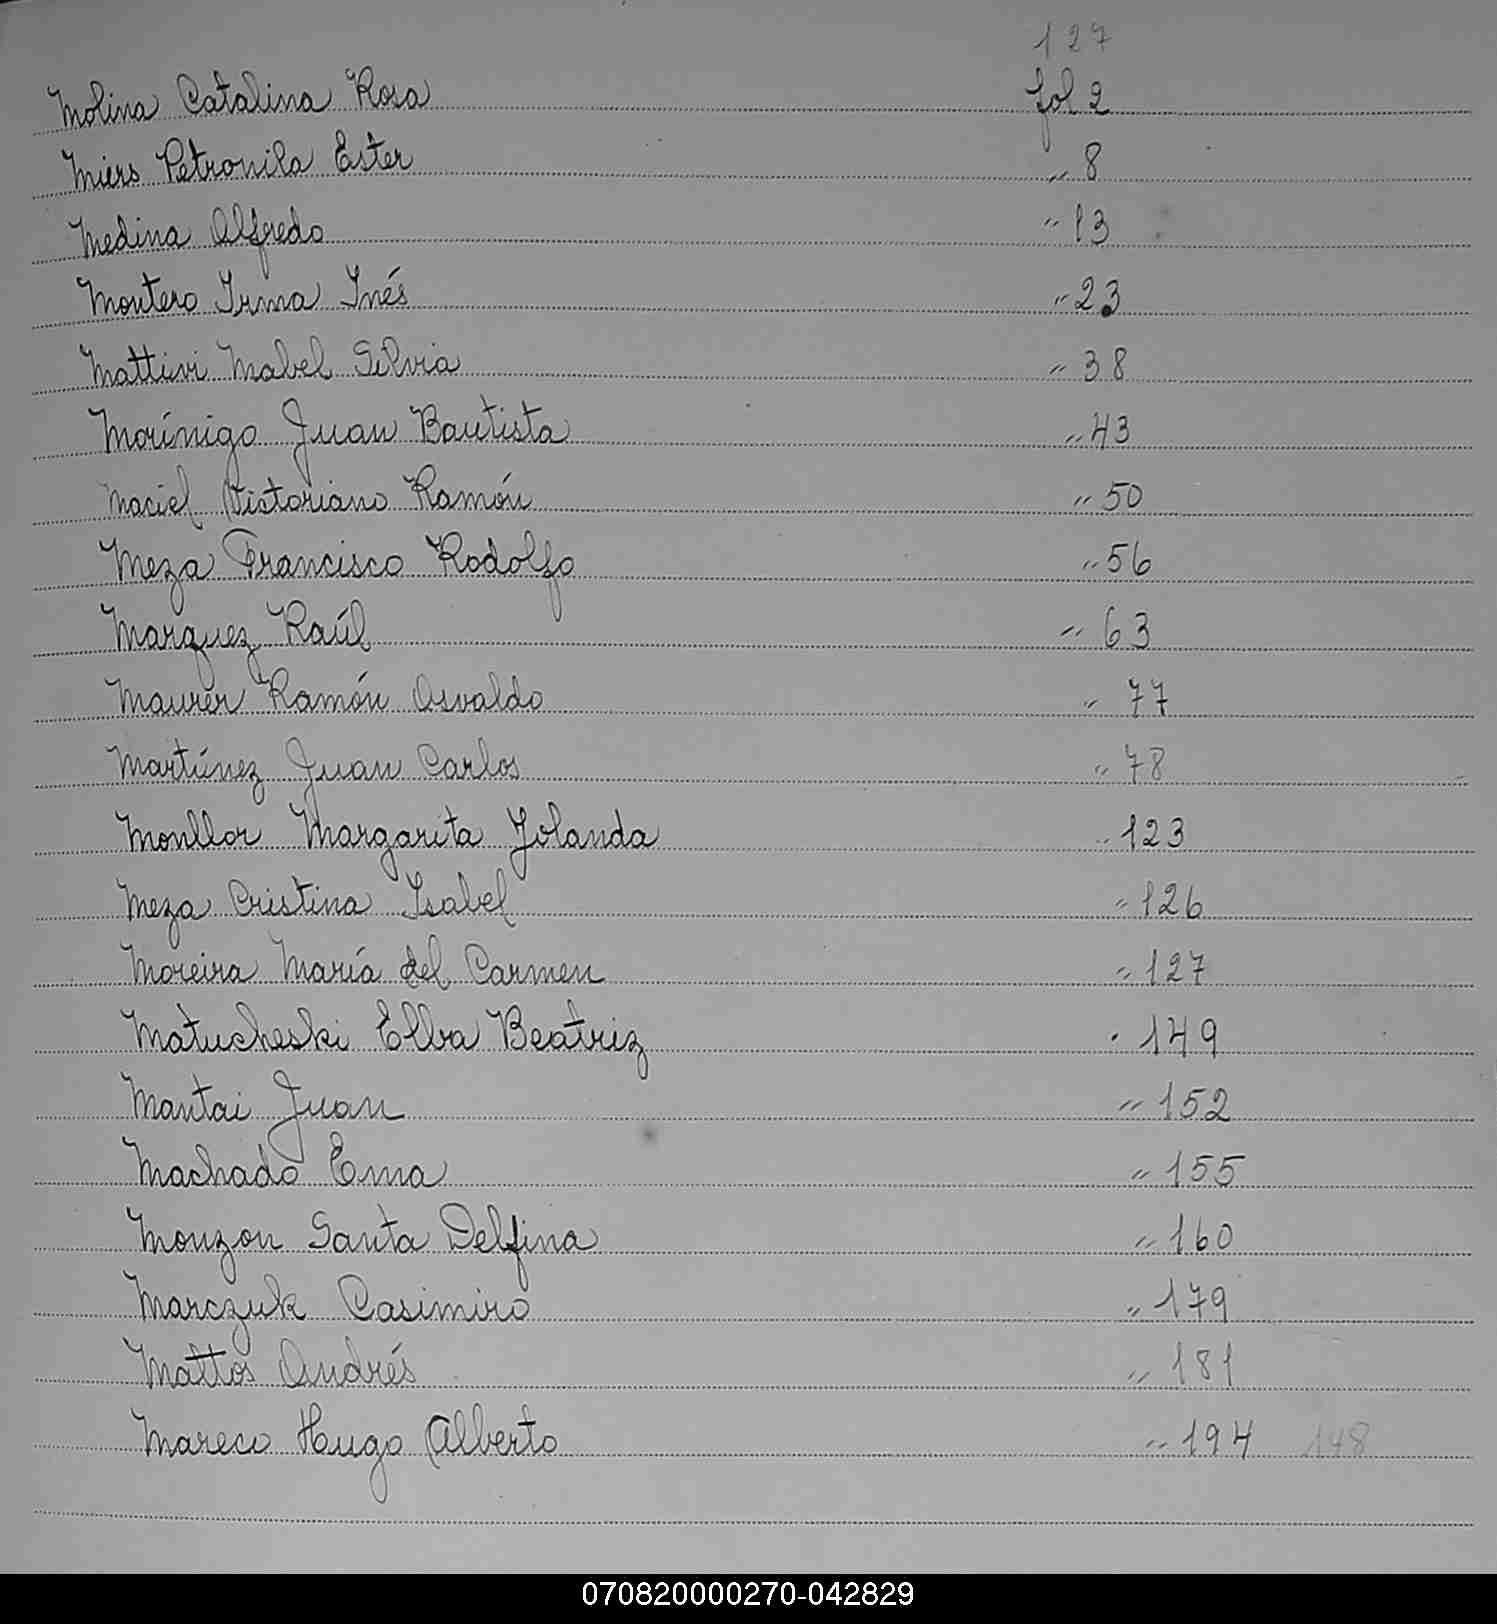 127
Molina Catalina Rosa fol 2
Miers Petronila Ester " 8
Medina Alfredo " 13
Montero Irma Inés " 23
Mattivi Mabel Silvia " 38
Morínigo Juan Bautista " 43
Maciel Victoriano Ramón " 50
Meza Francisco Rodolfo " 56
Marquez Raúl " 63
Maurer Ramón Osvaldo " 77
Martínez Juan Carlos " 78
Monllor Margarita Yolanda " 123
Meza Cristina Isabel " 126
Moreira María del Carmen " 127
Matucheski Elba Beatriz " 149
Mantai Juan " 152
Machado Ema " 155
Monzon Santa Delfina " 160
Marczuk Casimiro " 179
Mattos Andrés " 181
Mareco Hugo Alberto " 194 148
070820000270-042829